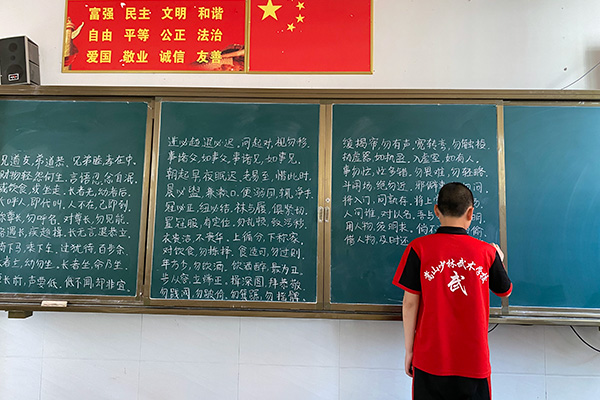 富强 民主 文明 和谐
自由 平等 公正 法治
爱国 敬业 诚信 友善
兄道友,弟道恭,兄弟睦,孝在中。
财物轻,怨何生,言语忍,忿自泯。
或饮食,或坐走,长者先,幼者后。
长呼人,即代叫,人不在,己即到。
称尊长,勿呼名,对尊长,勿见能。
路遇长,疾趋揖,长无言,退恭立。
骑下马,乘下车,过犹待,百步余。
长者立,幼勿坐,长者坐,命乃坐。
尊长前,声要低,低不闻,却非宜。
进必趋,退必迟,问起对,视勿移。
事诸父,如事父,事诸兄,如事兄。
朝起早,夜眠迟,老易至,惜此时。
晨必盥,兼漱口,便溺回,辄净手。
冠必正,纽必结,袜与履,俱紧切。
置冠服,有定位,勿乱顿,致污秽。
衣贵洁,不贵华,上循分,下称家。
对饮食,勿拣择,食适可,勿过则。
年方少,勿饮酒,饮酒醉,最为丑。
步从容,立端正,揖深圆,拜恭敬。
勿践阈,勿跛倚,勿箕踞,勿摇髀。
缓揭帘,勿有声,宽转弯,勿触棱。
执虚器,如执盈,入虚室,如有人。
事勿忙,忙多错,勿畏难,勿轻略。
斗闹场,绝勿近,邪僻事,问。
将入门,问孰存,将上
人问谁,对以名,吾与
用人物,须明求,倘不
借人物,及时还
嵩山少林武术学校
武